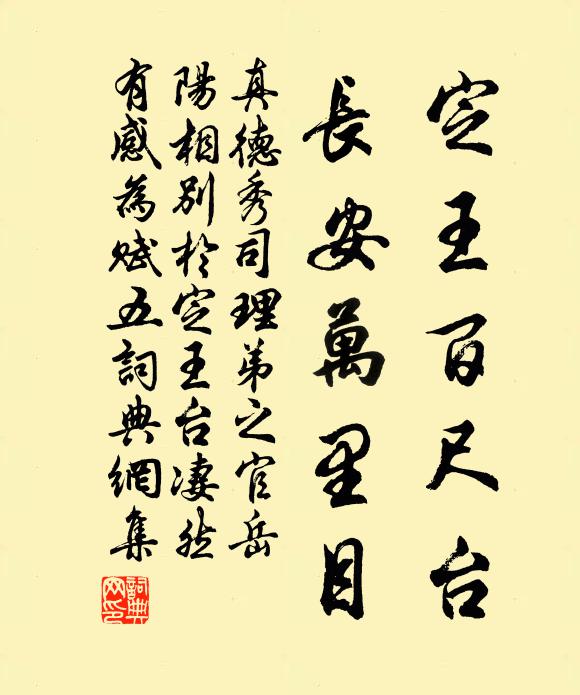 定王百尺台
長安萬里目
真德秀司理弟之官岳
陽相別於定王台凄然
有感為賦五詞典網集